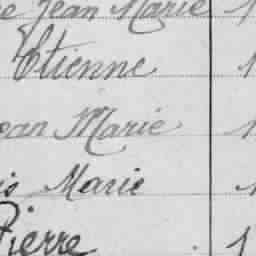 e Jean Marie 1
Etienne 1
ean Marie 1
is Marie 1
Pierre 1